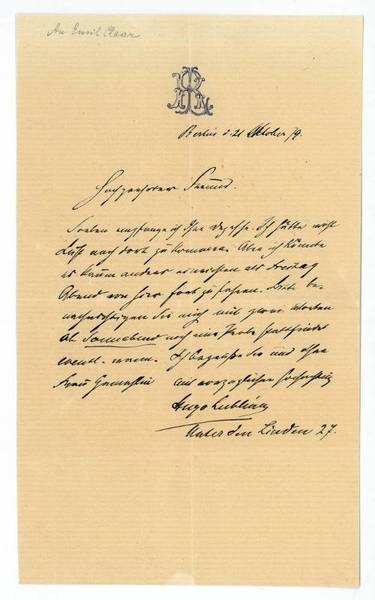 An Emil Claar
Berlin d. 21 Oktober 79.
Hochgeehrter Freund.
Soeben empfange ich Ihre Depesche. Ich hätte wohl
Lust nach dort zu kommen. Aber ich könnte
es kaum anders ermöglichen als Freitag
Abend von hier fortzufahren. Bitte be-
nachrichtigen Sie mich mit zwei Worten
ob Sonnabend noch eine Probe stattfindet
event. wann. Ich begrüße Sie und Ihre
Frau Gemahlin mit vorzüglicher Hochachtung
Hugo Lubliner
Unter den Linden 27.